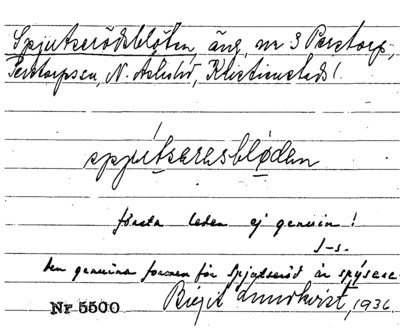 Spjutserödsbløten, äng, nr 3 Perstorp,
Perstorps sn, N. Åsbohd, Kristianstads l.
spjútseresblø̱den
första leden ej genuin!
J-s.
den genuina formen för Spjutseröd är spýsese
Nr 5500 Birgit Lundkvist, 1936